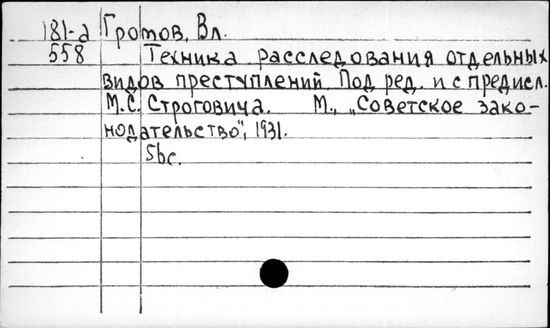 181-а Громов, Вл.
558 Техника расследования отдельных
видов преступлений Под ред. и с предисл.
М.С. Строговича. М., „Советское зако-
нодательство", 1931.
56с.